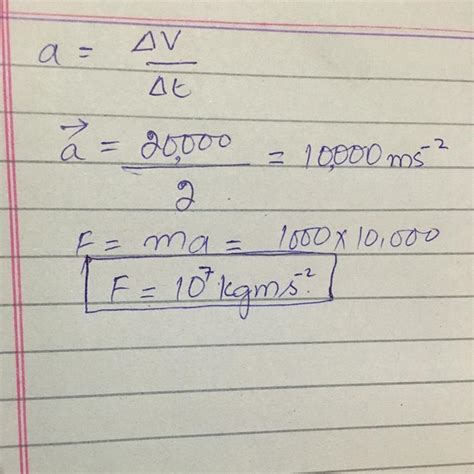 a = ΔV/Δt
a⃗ = 20,000/2 = 10,000 ms⁻²
F = ma = 1000 × 10,000
F = 10⁷ kgms⁻².